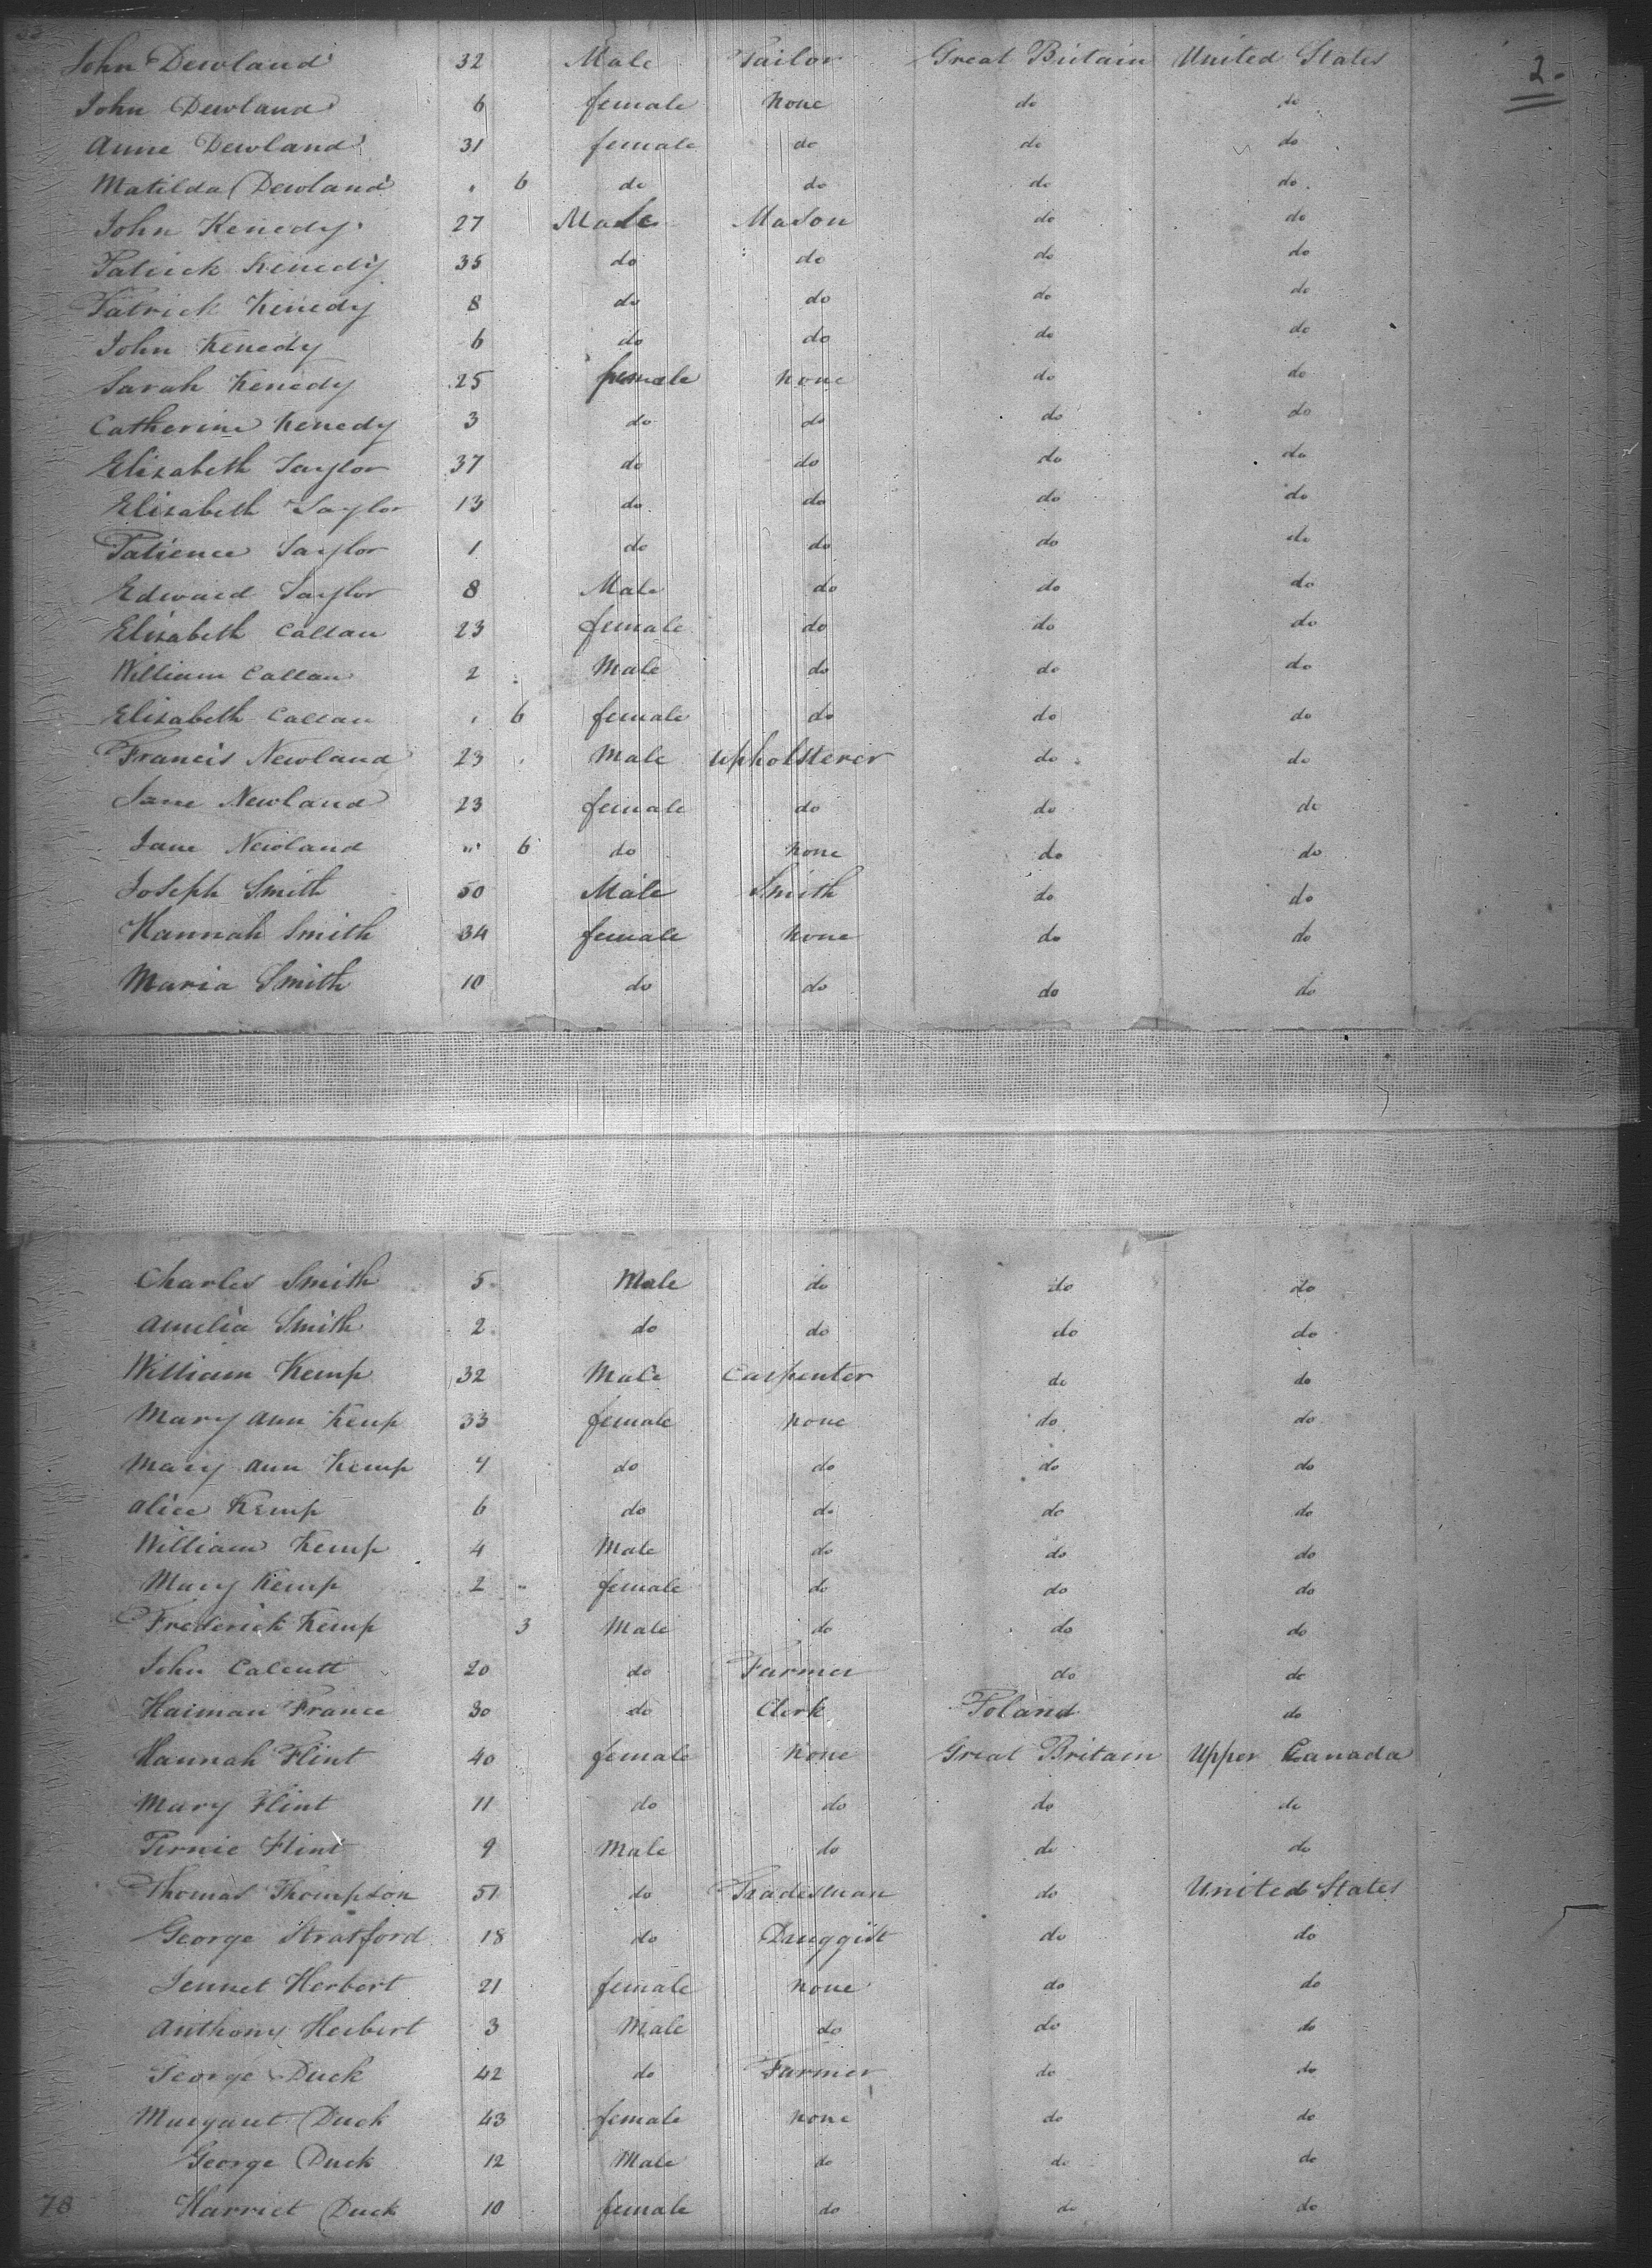 John Dewland 32 Male Tailor Great Britain United States 2.
John Dewland 6 female none do do
Anne Dewland 31 female do do do
Matilda Dewland " 6 do do do do
John Kenedy 27 Male Mason do do
Patrick Kenedy 35 do do do do
Patrick Kenedy 8 do do do do
John Kenedy 6 do do do do
Sarah Kenedy 25 female none do do
Catherine Kenedy 3 do do do do
Elizabeth Taylor 37 do do do do
Elizabeth Taylor 13 do do do do
Patience Taylor 1 do do do do
Edward Taylor 8 Male do do do
Elizabeth Callan 23 female do do do
William Callan 2 Male do do do
Elizabeth Callan " 6 female do do do
Francis Newland 23 Male upholsterer do do
Jane Newland 23 female do do do
Jane Newland " 6 do none do do
Joseph Smith 50 Male Smith do do
Hannah Smith 34 female none do do
Maria Smith 10 do do do do
Charles Smith 5 Male do do do
Amelia Smith 2 do do do do
William Kemp 32 Male Carpenter do do
Mary Ann Kemp 33 female none do do
Mary Ann Kemp do do do do
Alice Kemp 6 do do do do
William Kemp 4 Male do do do
Mary Kemp 2 " female do do do
Frederick Kemp 3 Male do do do
John Calcutt 20 do Farmer do do
Haiman France 30 do Clerk Poland do
Hannah Flint 40 female none Great Britain Upper Canada
Mary Flint 11 do do do do
Flint 9 Male do do do
Thomas Thompson 51 do Tradesman do United States
George Stratford 18 do Druggist do do
Jennet Herbert 21 female none do do
Anthony Herbert 3 Male do do do
George Duck 42 do Farmer do do
Margaret Duck 43 female none do do
George Duck 12 Male do do do
78 Harriet Duck 10 female do do do